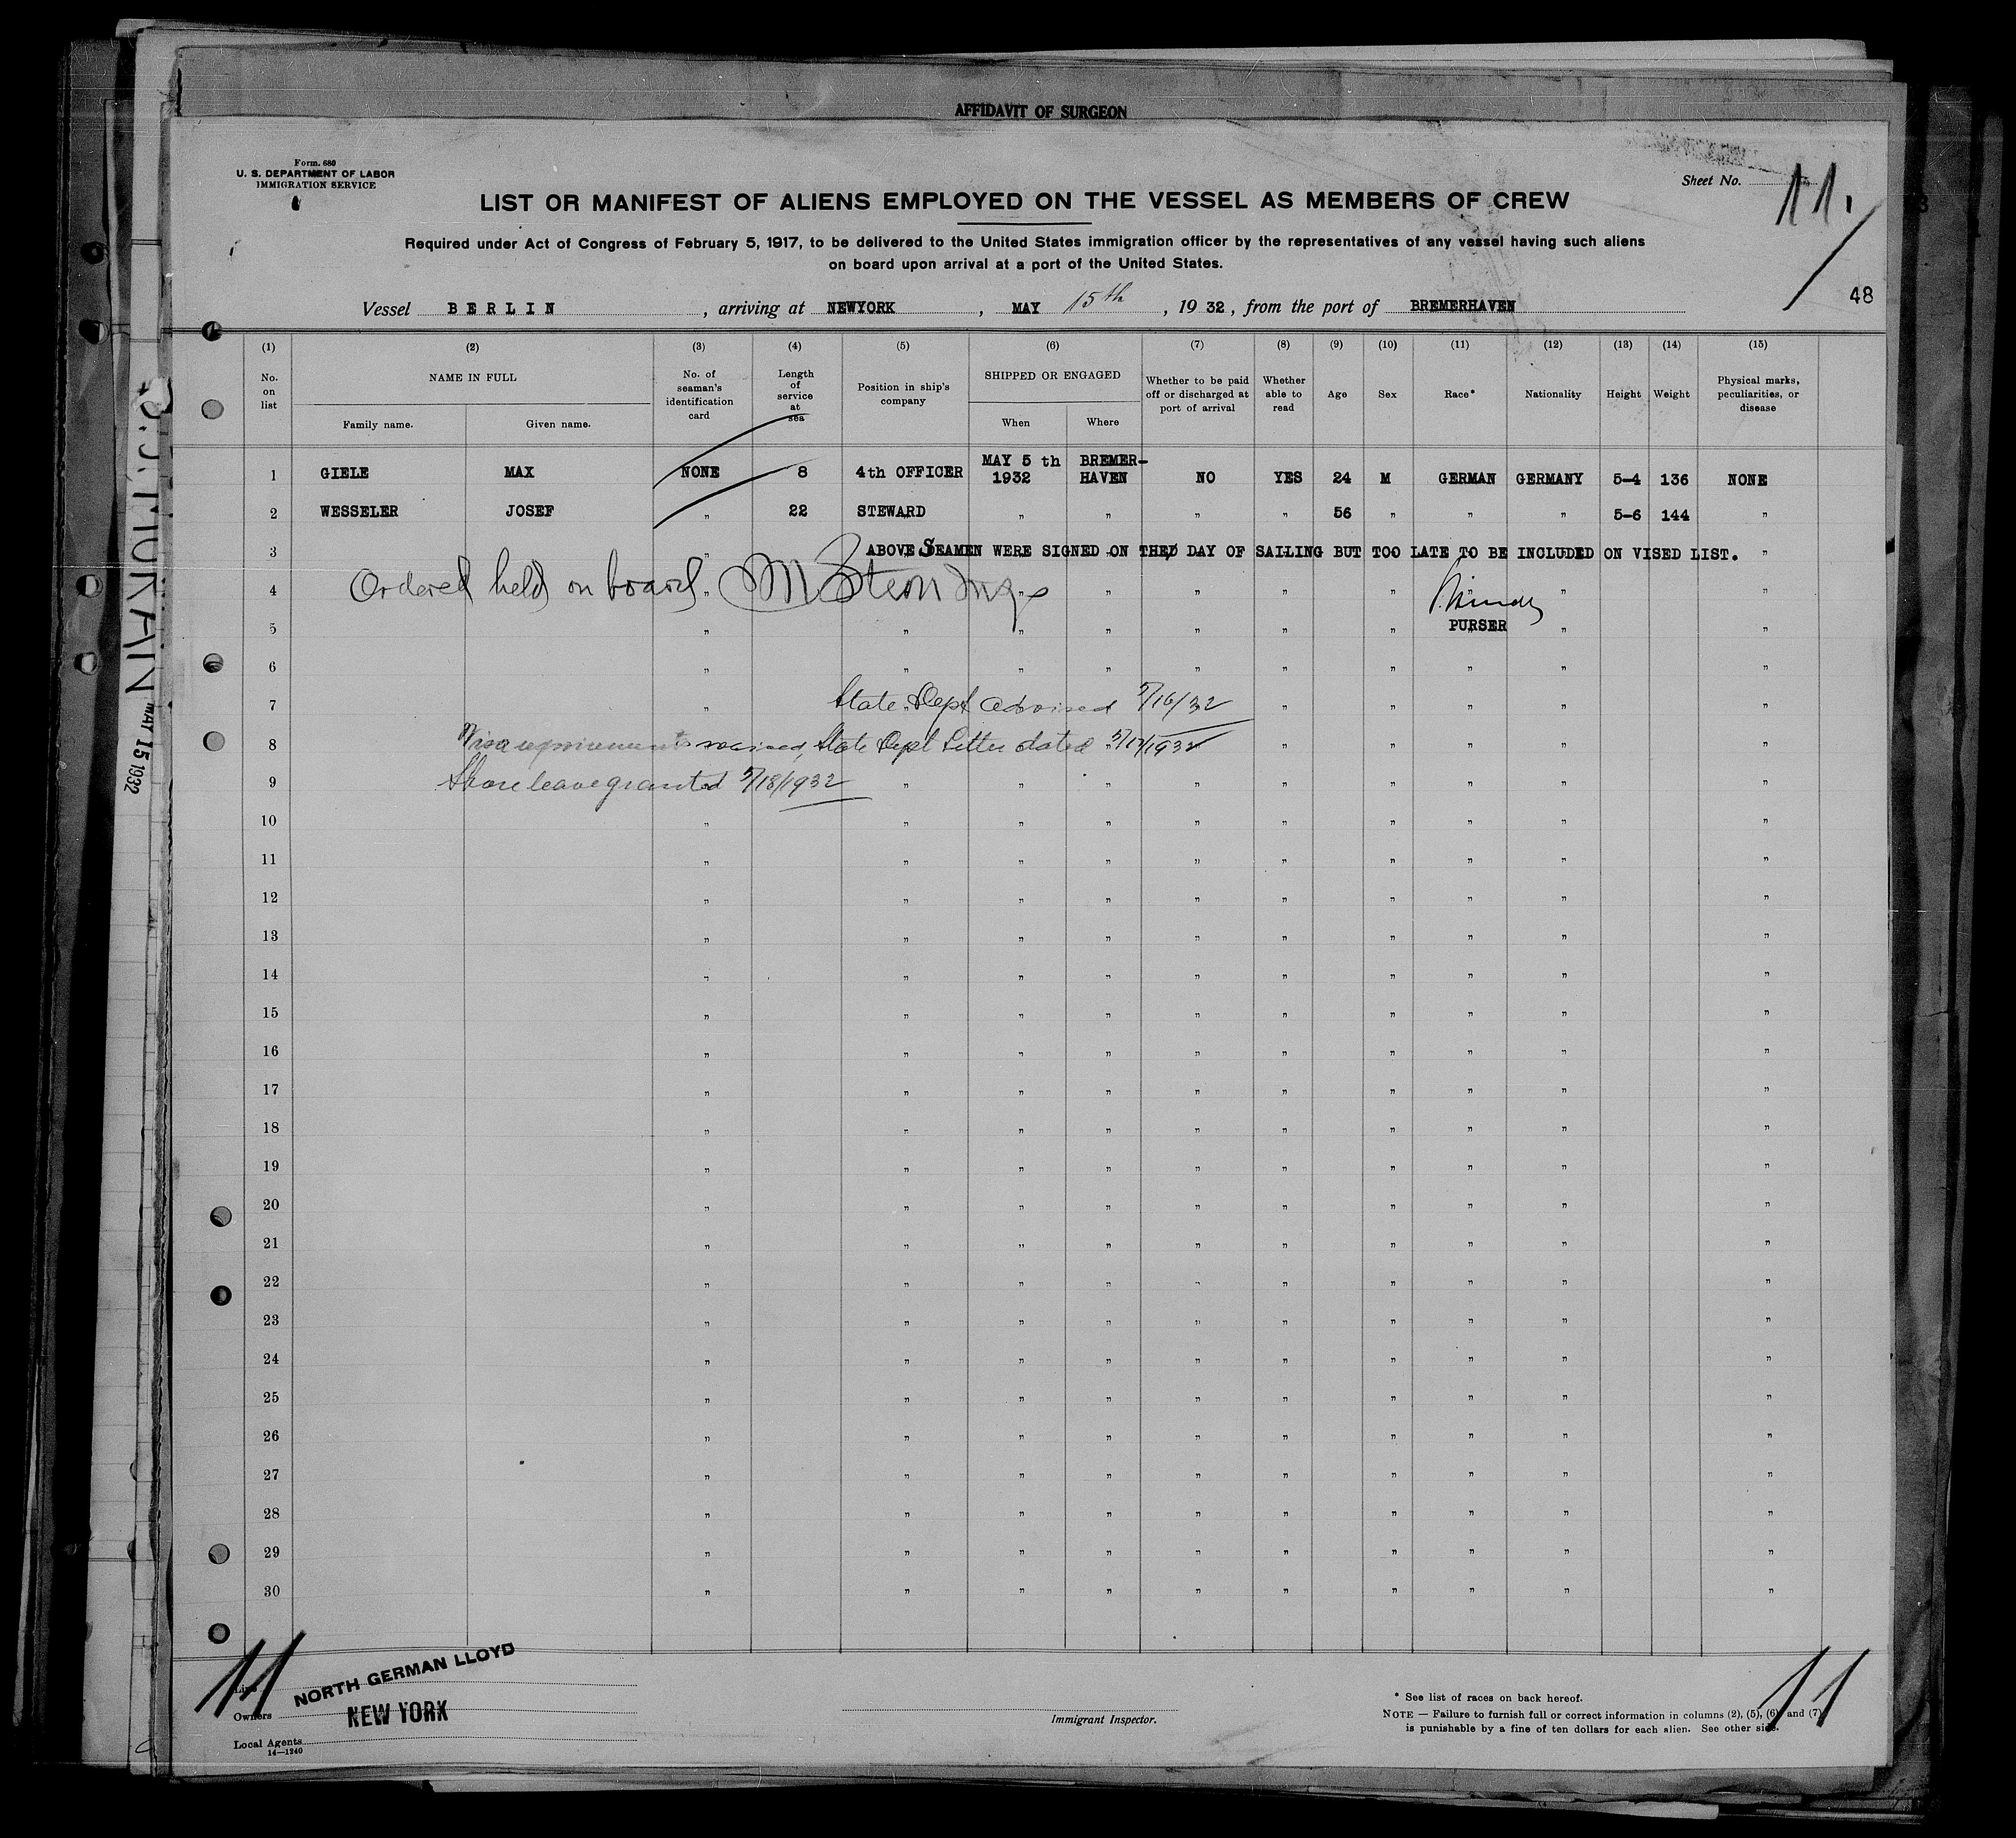 AFFIDAVIT OF SURGEON
Form. 680
U. S. DEPARTMENT OF LABOR
IMMIGRATION SERVICE
Sheet No. 11.
LIST OR MANIFEST OF ALIENS EMPLOYED ON THE VESSEL AS MEMBERS OF CREW
Required under Act of Congress of February 5, 1917, to be delivered to the United States immigration officer by the representatives of any vessel having such aliens
on board upon arrival at a port of the United States.
48
Vessel BERLIN, arriving at NEWYORK, MAY 15th, 1932, from the port of BREMERHAVEN
(1) (2) (3) (4) (5) (6) (7) (8) (9) (10) (11) (12) (13) (14) (15)
No. on list NAME IN FULL Family name. Given name. No. of seaman's identification card Length of service at sea Position in ship's company SHIPPED OR ENGAGED When Where Whether to be paid off or discharged at port of arrival Whether able to read Age Sex Race* Nationality Height Weight Physical marks, peculiarities, or disease
1 GIELE MAX NONE 8 4th OFFICER MAY 5 th 1932 BREMER-HAVEN NO YES 24 M GERMAN GERMANY 5-4 136 NONE
2 WESSELER JOSEF " 22 STEWARD " " " " 56 " " " 5-6 144 "
3 " ABOVE SEAMEN WERE SIGNED ON THE DAY OF SAILING BUT TOO LATE TO BE INCLUDED ON VISED LIST. "
4 Ordered held on board " M Stern " " " " " " "
5 " " " " " " " PURSER " "
6 " " " " " " " " " "
7 " State Dept advised 5/16/32 " " " " "
8 Visa requirements waived, State Dept Letter dated 5/17/1932 " " " " "
9 Shore leave granted 5/18/1932 " " " " " " " " "
10 " " " " " " " " "
11 " " " " " " " " "
12 " " " " " " " " "
13 " " " " " " " " "
14 " " " " " " " " "
15 " " " " " " " " "
16 " " " " " " " " "
17 " " " " " " " " "
18 " " " " " " " " "
19 " " " " " " " " "
20 " " " " " " " " "
21 " " " " " " " " "
22 " " " " " " " " "
23 " " " " " " " " "
24 " " " " " " " " "
25 " " " " " " " " "
26 " " " " " " " " "
27 " " " " " " " " "
28 " " " " " " " " "
29 " " " " " " " " "
30 " " " " " " " " "
MAY 15 1932
11
11
Line NORTH GERMAN LLOYD
Owners NEW YORK
Local Agents
14—1240
Immigrant Inspector.
* See list of races on back hereof.
NOTE — Failure to furnish full or correct information in columns (2), (5), (6), and (7)
is punishable by a fine of ten dollars for each alien. See other side.